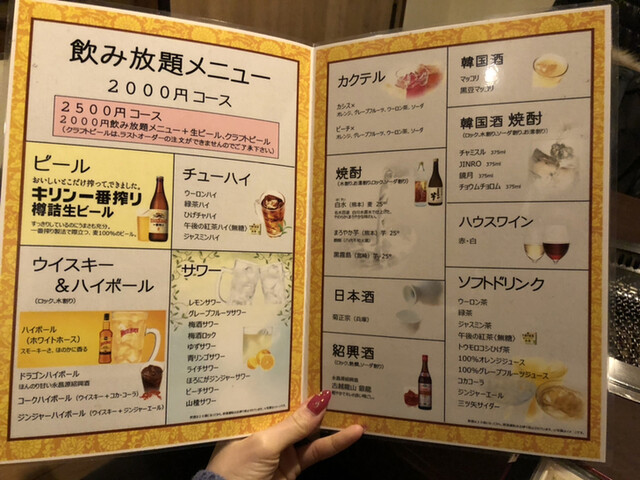 飲み放題メニュー
2000円コース
2500円コース
2000円飲み放題メニュー+生ビール、クラフトビール
(クラフトビールは、ラストオーダーの注文ができませんのでご了承下さい)
ビール
おいしいとこだけ搾って、できました。
キリン一番搾り
樽詰生ビール
すっきりしているのにうまさも充分。
一番搾り製法で際立つ、麦100%のビール。
チューハイ
ウーロンハイ
緑茶ハイ
ひげチャハイ
午後の紅茶ハイ(無糖)
ジャスミンハイ
ウイスキー
&ハイボール
(ロック、水割り)
ハイボール
(ホワイトホース)
スモーキーさ、ほのかに香る
ドラゴンハイボール
ほんのり甘い永昌源紹興酒
コークハイボール (ウイスキー+コカ・コーラ)
ジンジャーハイボール (ウイスキー+ジンジャーエール)
サワー
レモンサワー
グレープフルーツサワー
梅酒サワー
梅酒ロック
ゆずサワー
青リンゴサワー
ライチサワー
ほろにがジンジャーサワー
ピーチサワー
山楂サワー
カクテル
カシス×
オレンジ、グレープフルーツ、ウーロン茶、ソーダ
ピーチ×
オレンジ、グレープフルーツ、ウーロン茶、ソーダ
焼酎
(水割り、お湯割り、ロック、ソーダ割り)
白水 (熊本) 麦 25°
まろやか芋 (熊本) 芋 25°
黒霧島 (宮崎) 芋 25°
日本酒
菊正宗 (兵庫)
紹興酒
(ロック、熱燗、ソーダ割り)
永昌源紹興酒
古越龍山 銀龍
韓国酒
マッコリ
黒豆マッコリ
韓国酒 焼酎
(ロック、水割り、ソーダ割り、お湯割り)
チャミスル 375ml
JINRO 375ml
鏡月 375ml
チョウムチョロム 375ml
ハウスワイン
赤・白
ソフトドリンク
ウーロン茶
緑茶
ジャスミン茶
午後の紅茶(無糖)
トウモロコシひげ茶
100%オレンジジュース
100%グレープフルーツジュース
コカコーラ
ジンジャエール
三ツ矢サイダー